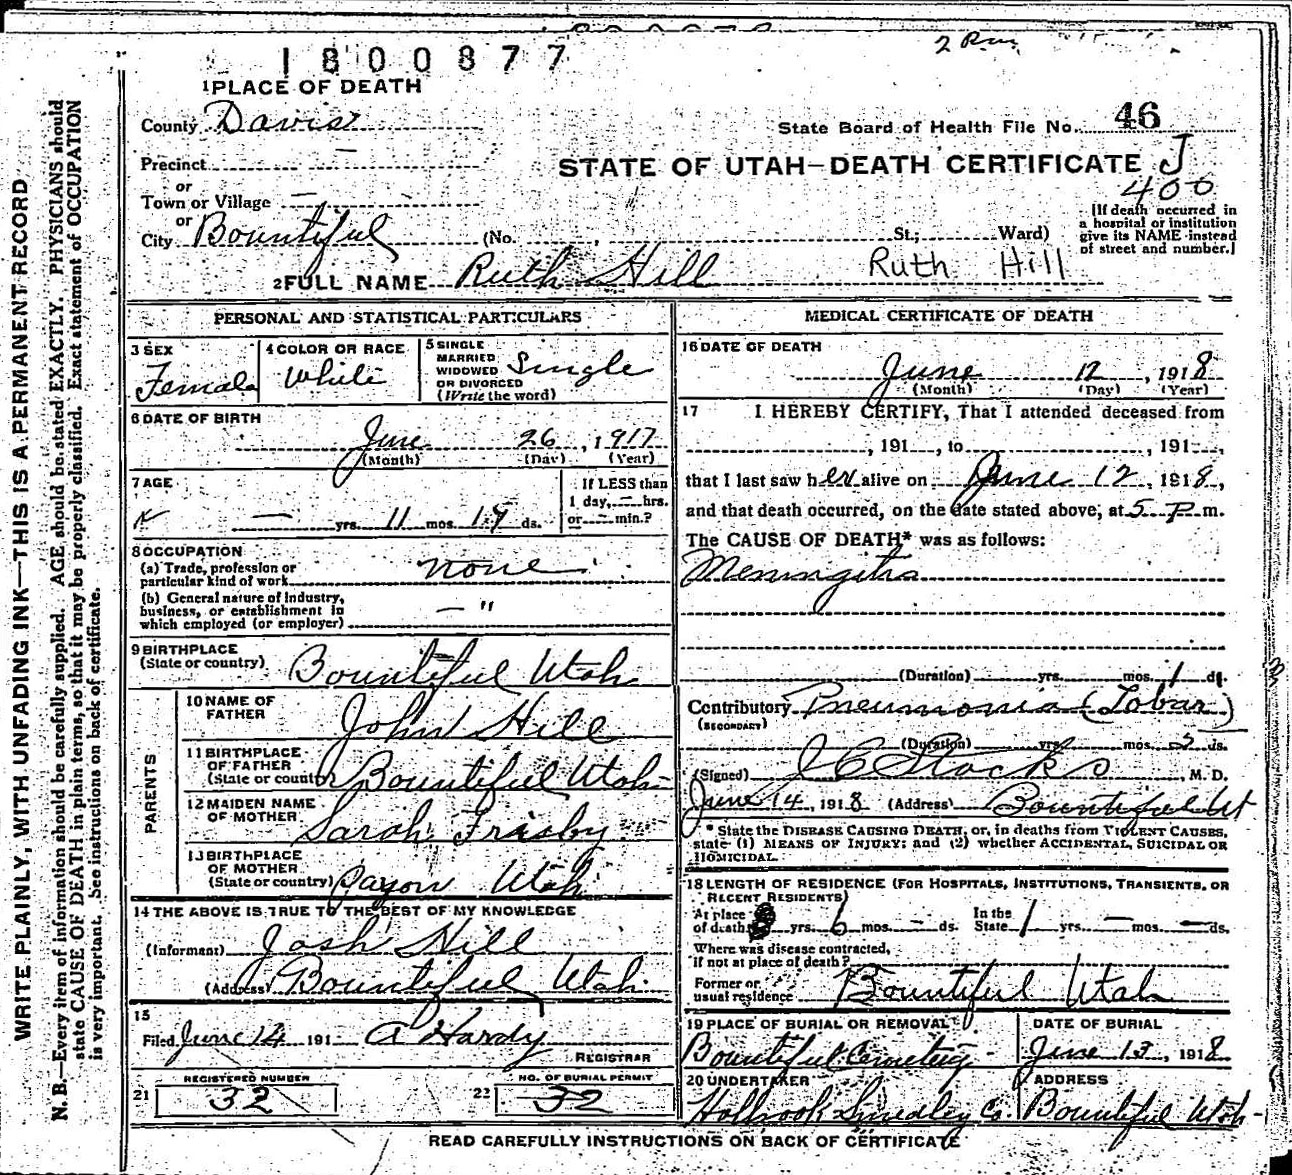 1800877
2 Rm
1 PLACE OF DEATH
County Davis
State Board of Health File No. 46
Precinct —
STATE OF UTAH—DEATH CERTIFICATE J
or
400
Town or Village —
[If death occurred in a hospital or institution give its NAME instead of street and number.]
or
City Bountiful (No. , St.; Ward)
2 FULL NAME Ruth Hill Ruth Hill
PERSONAL AND STATISTICAL PARTICULARS
3 SEX Female
4 COLOR OR RACE White
5 SINGLE MARRIED WIDOWED OR DIVORCED (Write the word) Single
6 DATE OF BIRTH
June 26, 1917
(Month) (Day) (Year)
7 AGE
— yrs. 11 mos. 19 ds.
If LESS than 1 day, — hrs. or — min.?
8 OCCUPATION
(a) Trade, profession or particular kind of work none
(b) General nature of industry, business, or establishment in which employed (or employer) — "
9 BIRTHPLACE
(State or country) Bountiful Utah
PARENTS
10 NAME OF FATHER John Hill
11 BIRTHPLACE OF FATHER (State or country) Bountiful Utah
12 MAIDEN NAME OF MOTHER Sarah Frisby
13 BIRTHPLACE OF MOTHER (State or country) Payson Utah
14 THE ABOVE IS TRUE TO THE BEST OF MY KNOWLEDGE
(Informant) Josh Hill
(Address) Bountiful Utah
15
Filed June 14 191 A Hardy
REGISTRAR
21 REGISTERED NUMBER 32
22 NO. OF BURIAL PERMIT 32
MEDICAL CERTIFICATE OF DEATH
16 DATE OF DEATH
June 12, 1918
(Month) (Day) (Year)
17 I HEREBY CERTIFY, That I attended deceased from
, 191 , to , 191 ,
that I last saw her alive on June 12, 1918,
and that death occurred, on the date stated above, at 5 P m.
The CAUSE OF DEATH* was as follows:
Meningitis
(Duration) yrs. mos. 1 ds.
Contributory Pneumonia (Lobar)
(SECONDARY)
(Duration) yrs. mos. 5 ds.
(Signed) J C Stocks, M. D.
June 14, 1918 (Address) Bountiful Ut
* State the DISEASE CAUSING DEATH, or, in deaths from VIOLENT CAUSES,
state (1) MEANS OF INJURY; and (2) whether ACCIDENTAL, SUICIDAL OR
HOMICIDAL.
18 LENGTH OF RESIDENCE (FOR HOSPITALS, INSTITUTIONS, TRANSIENTS, OR
RECENT RESIDENTS)
At place of death yrs. 6 mos. — ds. In the State 1 yrs. — mos. — ds.
Where was disease contracted,
if not at place of death?
Former or usual residence Bountiful Utah
19 PLACE OF BURIAL OR REMOVAL
Bountiful Cemetery
DATE OF BURIAL
June 13, 1918
20 UNDERTAKER
Holbrook Smedley Co.
ADDRESS
Bountiful Utah
READ CAREFULLY INSTRUCTIONS ON BACK OF CERTIFICATE
WRITE PLAINLY, WITH UNFADING INK—THIS IS A PERMANENT RECORD
N. B.—Every item of information should be carefully supplied. AGE should be stated EXACTLY. PHYSICIANS should
state CAUSE OF DEATH in plain terms, so that it may be properly classified. Exact statement of OCCUPATION
is very important. See instructions on back of certificate.